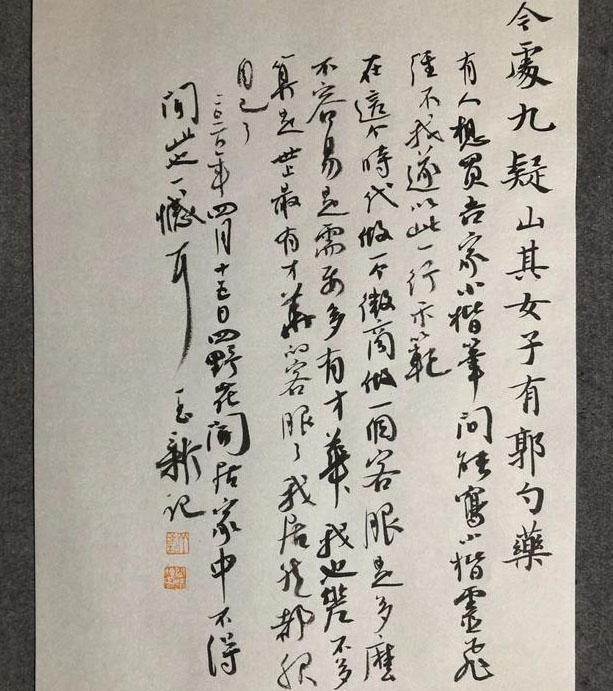 令處九疑山其女子有郭勺藥
有人想買吾家小楷筆問能寫小楷靈飛
經不我遂以此一行示範
在這个時代做一个微商做一個客服是多麼
不容易是需要多有才華我也差不多
算是世上最有才華的客服了我居然都服
自己了
二〇二〇年四月十五日四野花開居家中不得
聞此一憾耳 新記